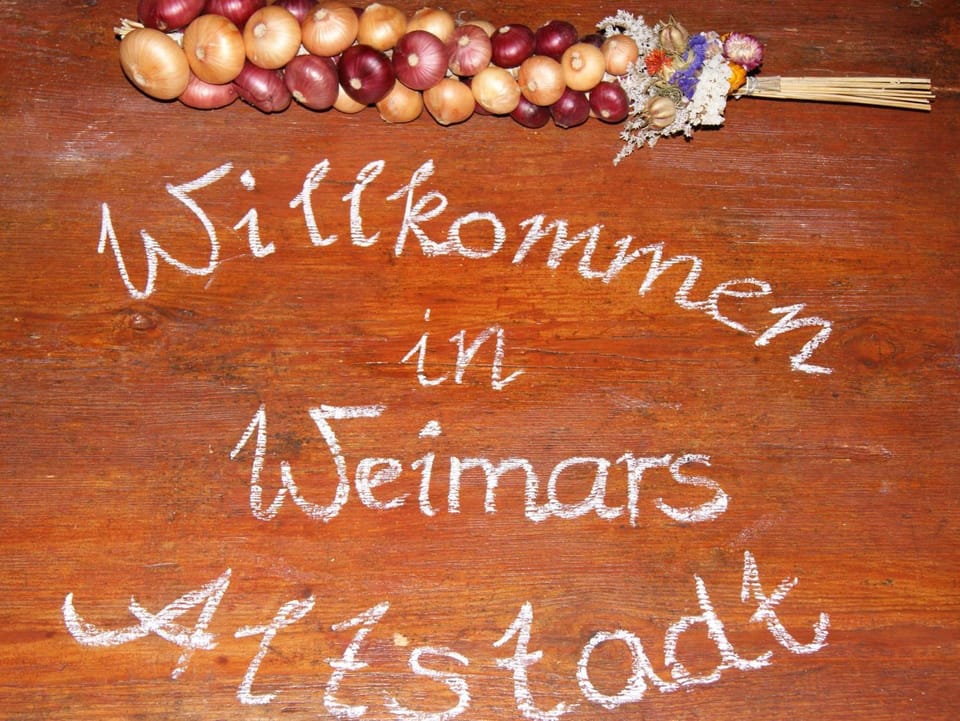 Willkommen
in
Weimars
Altstadt